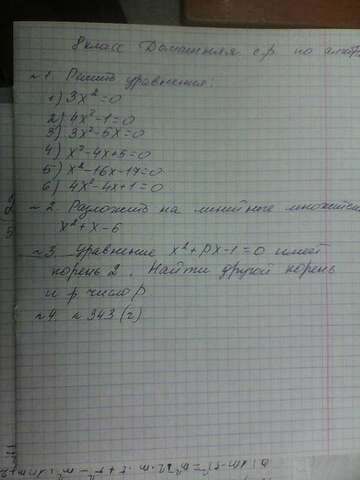 8 класс Домашняя с.р. по алгебр
~1. Решить уравнения:
1) 3x²=0
2) 4x²-1=0
3) 3x²-5x=0
4) x²-4x+5=0
5) x²-16x-17=0
6) 4x²-4x+1=0
~2. Разложить на линейные множител
x²+x-6
~3. Уравнение x²+px-1=0 имеет
корень 2. Найти другой корень
и р. число p
~4. ~343(2)